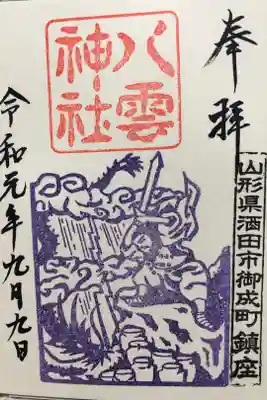 奉拝
八雲
神社
山形県酒田市御成町鎮座
令和元年九月九日